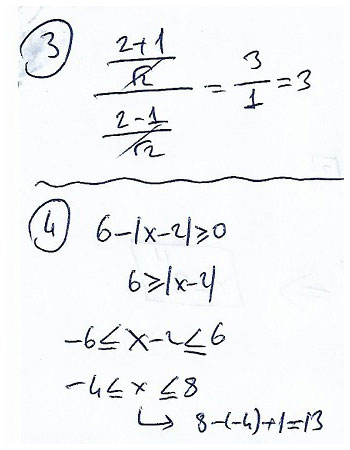 3
2+1
√2
2-1
√2
= 3/1 = 3
4
6-|x-2|≥0
6≥|x-2|
-6≤x-2≤6
-4≤x≤8
↳ 8-(-4)+1=13